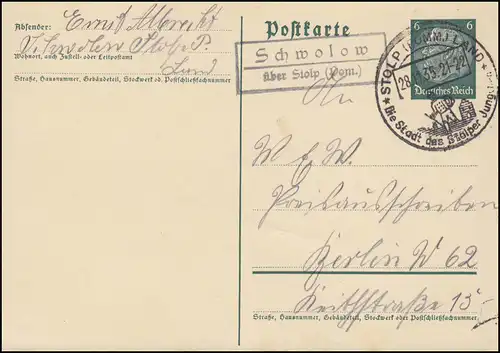 Absender: Ernst Albrecht
Schwolow Stolp P.
Wohnort, auch Zustell- oder Leitpostamt
Land
Straße, Hausnummer, Gebäudeteil, Stockwerk od. Postschließfachnummer
Postkarte
Schwolow
über Stolp (Pom.)
6 6
Deutsches Reich
STOLP (POMM) LAND
28. 35.21-22
* Die Stadt des Stolper Jung
An
W E W.
Preisausschreiben
Berlin W 62
Keithstraße 15
Straße, Hausnummer, Gebäudeteil, Stockwerk oder Postschließfachnummer